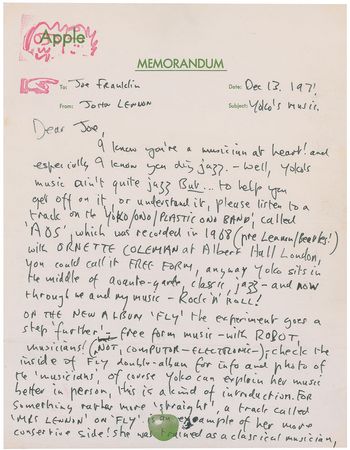 Apple
MEMORANDUM
To: Joe Franklin Date: Dec 13. 1971
From: John Lennon Subject: Yoko's Music.
Dear Joe,
I know you're a musician at heart! and
especially I know you dig jazz. - well, Yoko's
music ain't quite jazz But... to help you
get off on it, or understand it, please listen to a
track on the 'YOKO/ONO/PLASTIC ONO BAND', called
'AOS', which was recorded in 1968 (pre Lennon/Beatles!)
with ORNETTE COLEMAN at Albert Hall London,
you could call it FREE FORM, anyway Yoko sits in
the middle of avante-garde, classic, jazz - and now
through me and my music - ROCK 'N' ROLL!
ON THE NEW ALBUM 'FLY' the experiment goes a
step further - free form music - with ROBOT
musicians! (NOT COMPUTOR-ELECTRONIC-); check the
inside of Fly double-album for info and photo of
the 'musicians', of course Yoko can explain her music
better in person, this is a kind of introduction. FOR
something rather more 'straight', a track called
'MRS LENNON' on 'FLY' is an example of her more
consertive side! she was trained as a classical musician,